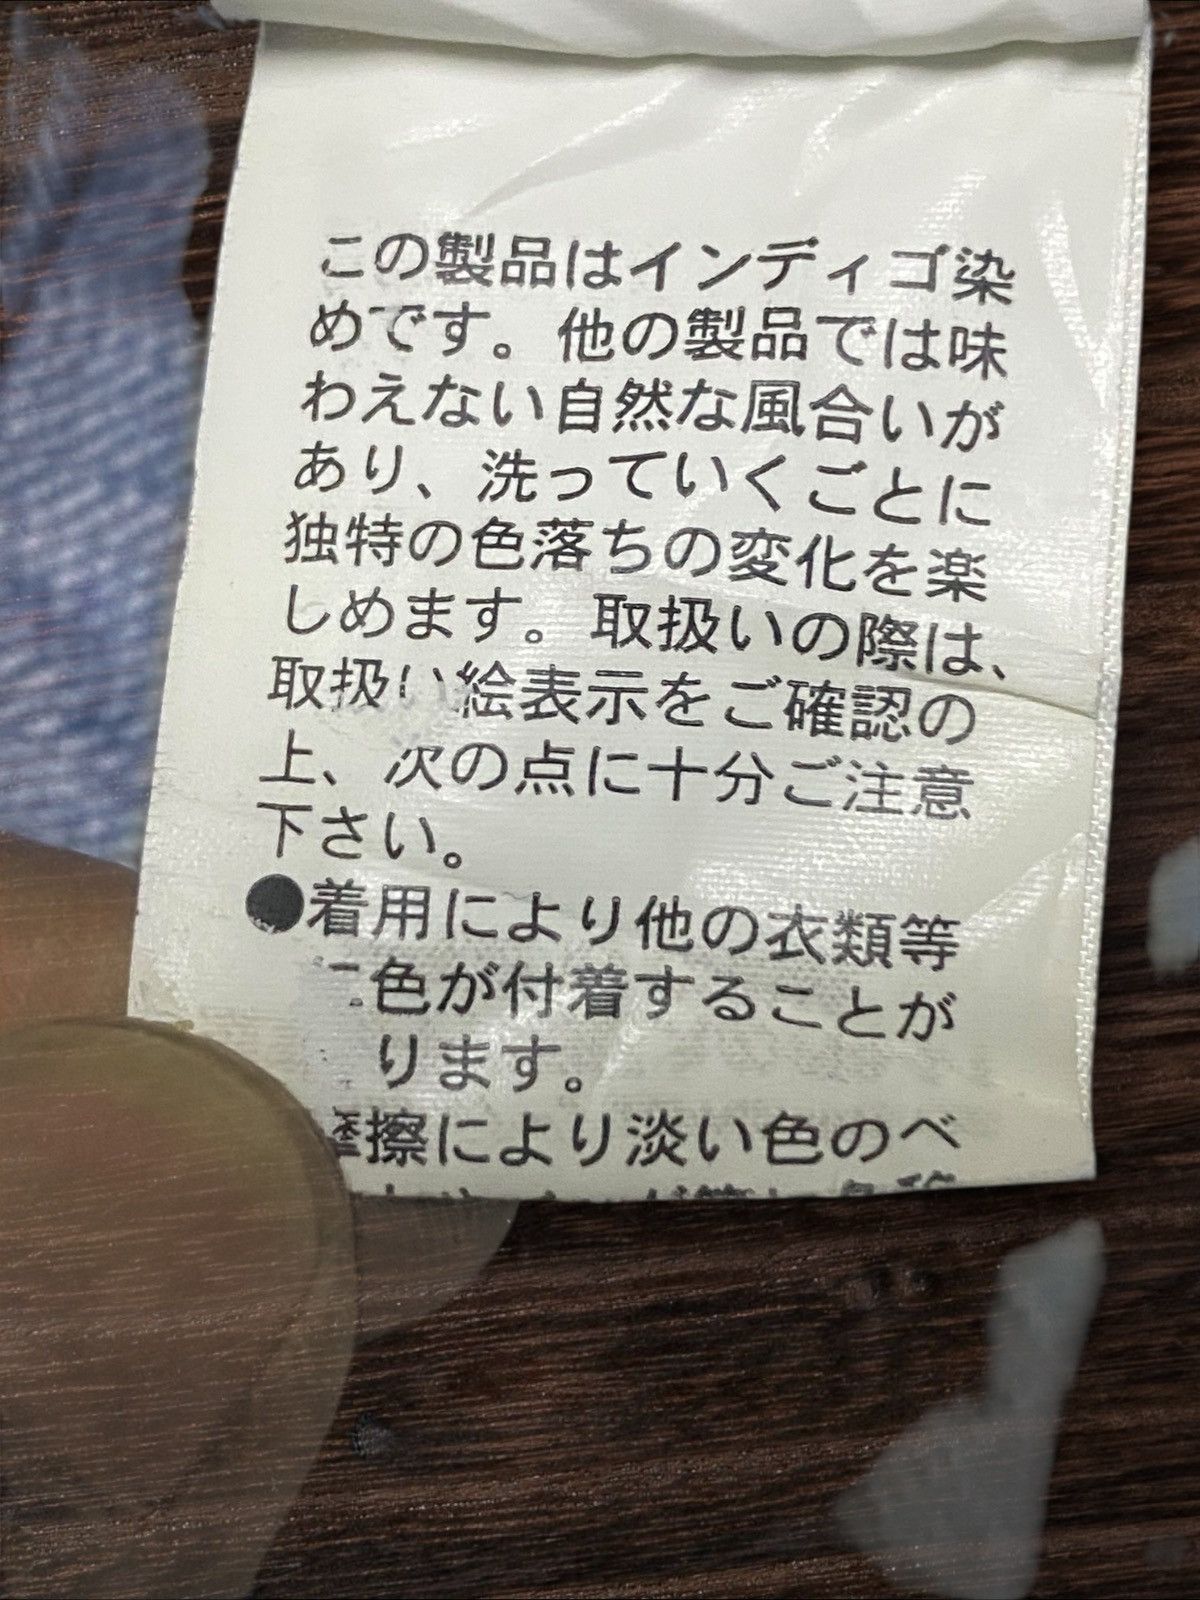 この製品はインディゴ染
めです。他の製品では味
わえない自然な風合いが
あり、洗っていくごとに
独特の色落ちの変化を楽
しめます。取扱いの際は、
取扱い絵表示をご確認の
上、次の点に十分ご注意
下さい。
●着用により他の衣類等
に色が付着することが
ります。
摩擦により淡い色のベ